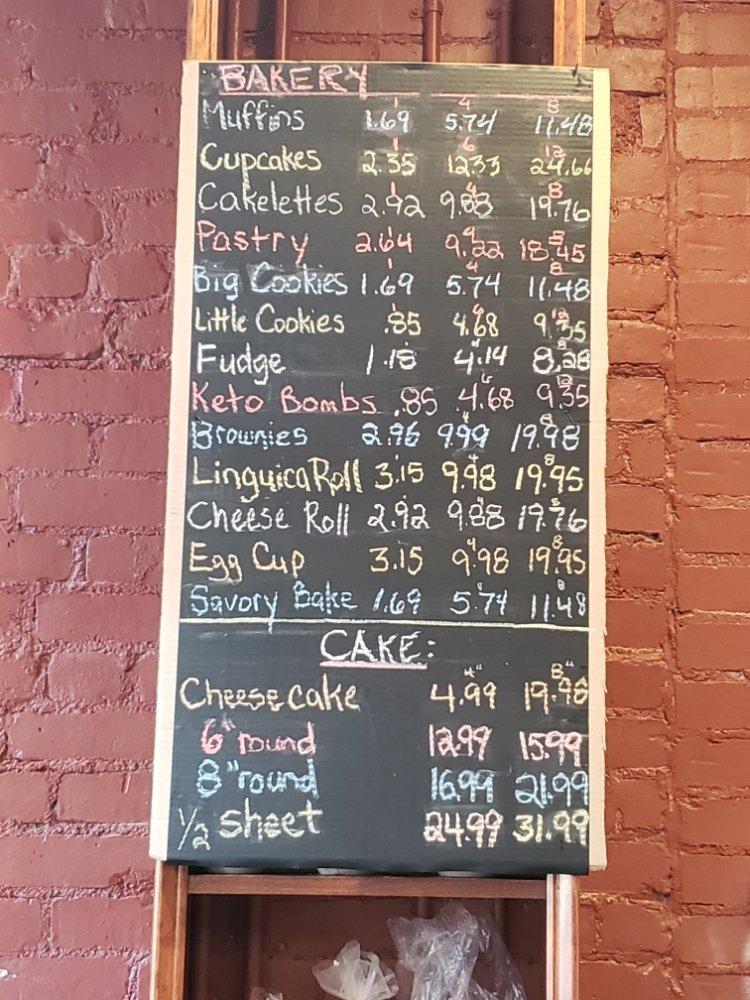 BAKERY
1 4 8
Muffins 1.69 5.74 11.48
1 6 12
Cupcakes 2.35 12.33 24.66
1 4 8
Cakelettes 2.92 9.88 19.76
1 4 8
Pastry 2.64 9.22 18.45
1 4 8
Big Cookies 1.69 5.74 11.48
1 6 12
Little Cookies .85 4.68 9.35
Fudge 1.18 4.14 8.28
6 12
Keto Bombs .85 4.68 9.35
4 8
Brownies 2.96 9.99 19.98
4 8
Linguica Roll 3.15 9.98 19.95
4 8
Cheese Roll 2.92 9.88 19.76
4 8
Egg Cup 3.15 9.98 19.95
Savory Bake 1.69 5.74 11.48
CAKE:
4" 8"
Cheesecake 4.99 19.98
6" round 12.99 15.99
8" round 16.99 21.99
1/2 sheet 24.99 31.99